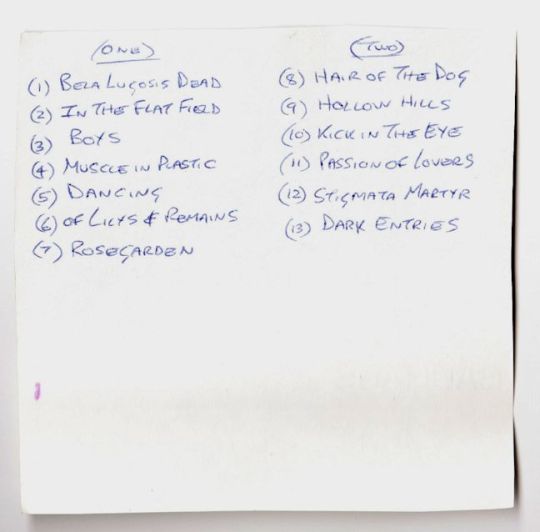 (ONE)
(1) BELA LUGOSIS DEAD
(2) IN THE FLAT FIELD
(3) BOYS
(4) MUSCLE IN PLASTIC
(5) DANCING
(6) OF LILYS & REMAINS
(7) ROSEGARDEN
(TWO)
(8) HAIR OF THE DOG
(9) HOLLOW HILLS
(10) KICK IN THE EYE
(11) PASSION OF LOVERS
(12) STIGMATA MARTYR
(13) DARK ENTRIES